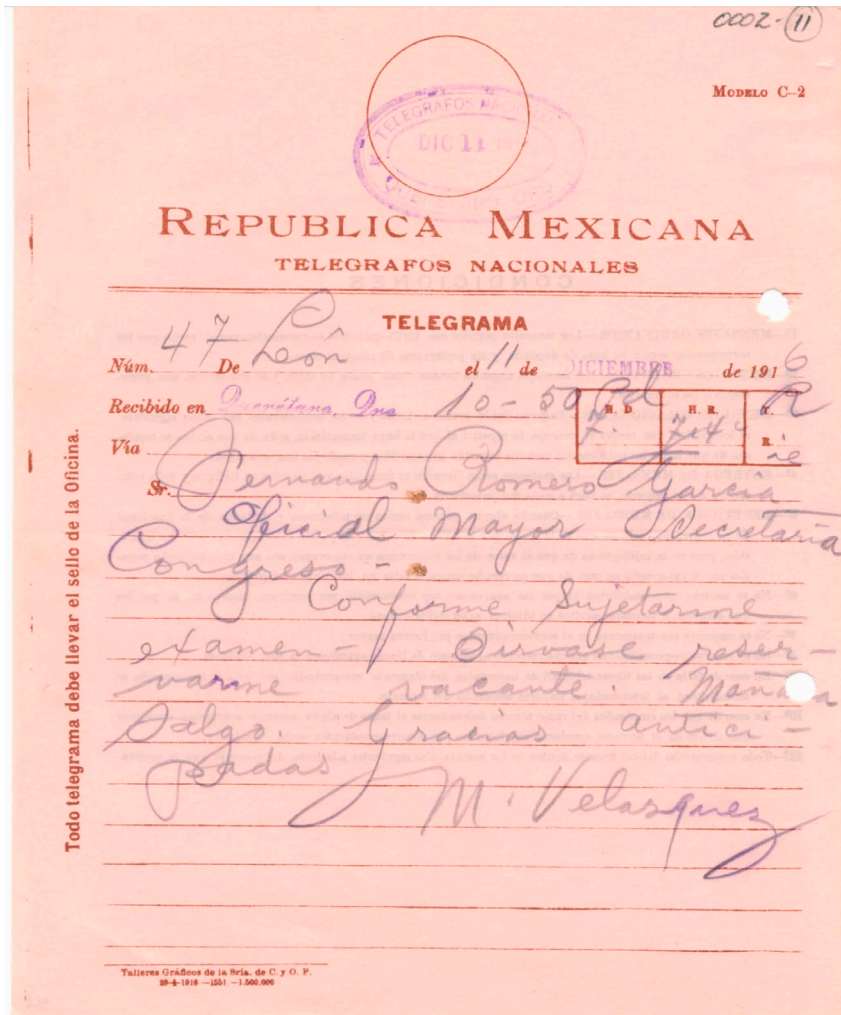 0002-11
MODELO C-2
TELEGRAFOS NACIONALES
DIC 11
REPUBLICA MEXICANA
TELEGRAFOS NACIONALES
TELEGRAMA
Núm. 47 De León el 11 de DICIEMBRE de 1916
Recibido en Querétaro, Qro 10-50
H. D. H. R. T.
7. 7.40 R.
Vía
Sr. Fernando Romero García
Oficial Mayor Secretaría
Congreso-
Conforme Sujetarme
examen- Sirvase reser-
varme vacante. Mañana
Salgo. Gracias antici-
padas
M. Velasquez
Todo telegrama debe llevar el sello de la Oficina.
Talleres Gráficos de la Sría. de C. y O. P.
29-4-1916 -1551 -1.500.000